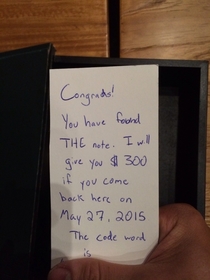 Congrads!
You have found
THE note. I will
give you $300
if you come
back here on
May 27, 2015
The code word
is